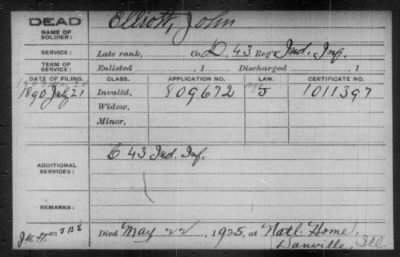 DEAD
NAME OF SOLDIER: Elliott, John
SERVICE: Late rank, Co. D, 43 Reg't Ind. Inf.
TERM OF SERVICE: Enlisted , 1 Discharged , 1
DATE OF FILING. CLASS. APPLICATION NO. LAW. CERTIFICATE NO.
1890 July 21 Invalid, 809672 J 1011397
Widow,
Minor,
ADDITIONAL SERVICES: C 43 Ind. Inf.
REMARKS:
Died May 22, 1925, at Natl. Home,
Danville, Ill.